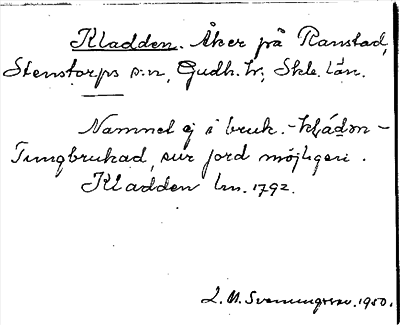 Kladden. Åker på Ranstad,
Stenstorps s:n, Gudh. hr; Skbg. län.
Namnet ej i bruk. - kládən -
Tungbrukad, sur jord möjligen.
Kladden lm. 1792.
L. M. Svenungsson. 1950.